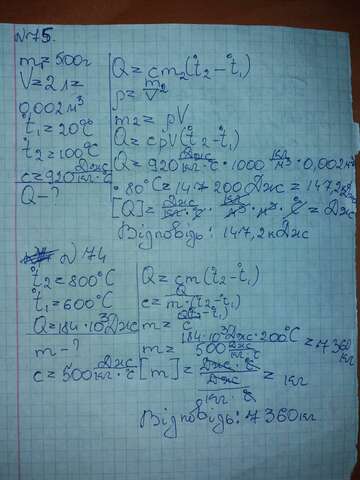 №75.
m = 500г
V = 2 л =
0,002 м³
t₁ = 20°C
t₂ = 100°C
c = 920 Дж/кг·°C
Q - ?
Q = cm₂(t₂ - t₁)
ρ = m₂/V
m₂ = ρV
Q = cρV(t₂ - t₁)
Q = 920 Дж/кг·°C · 1000 кг/м³ · 0,002 м³
· 80°C = 147 200 Дж = 147,2 кДж
[Q] = Дж/кг·°C · кг/м³ · м³ · °C = Дж
Відповідь: 147,2 кДж
№174
t₂ = 800°C
t₁ = 600°C
Q = 184·10³Дж
m - ?
c = 500 Дж/кг·°C
Q = cm(t₂ - t₁)
c = Q/m·(t₂ - t₁)
m = Q(t₂ - t₁)/c
m = 184·10³Дж·200°C/500 Дж/кг·°C = 7360 кг
[m] = Дж·°C/Дж/кг·°C = кг
Відповідь: 7360 кг